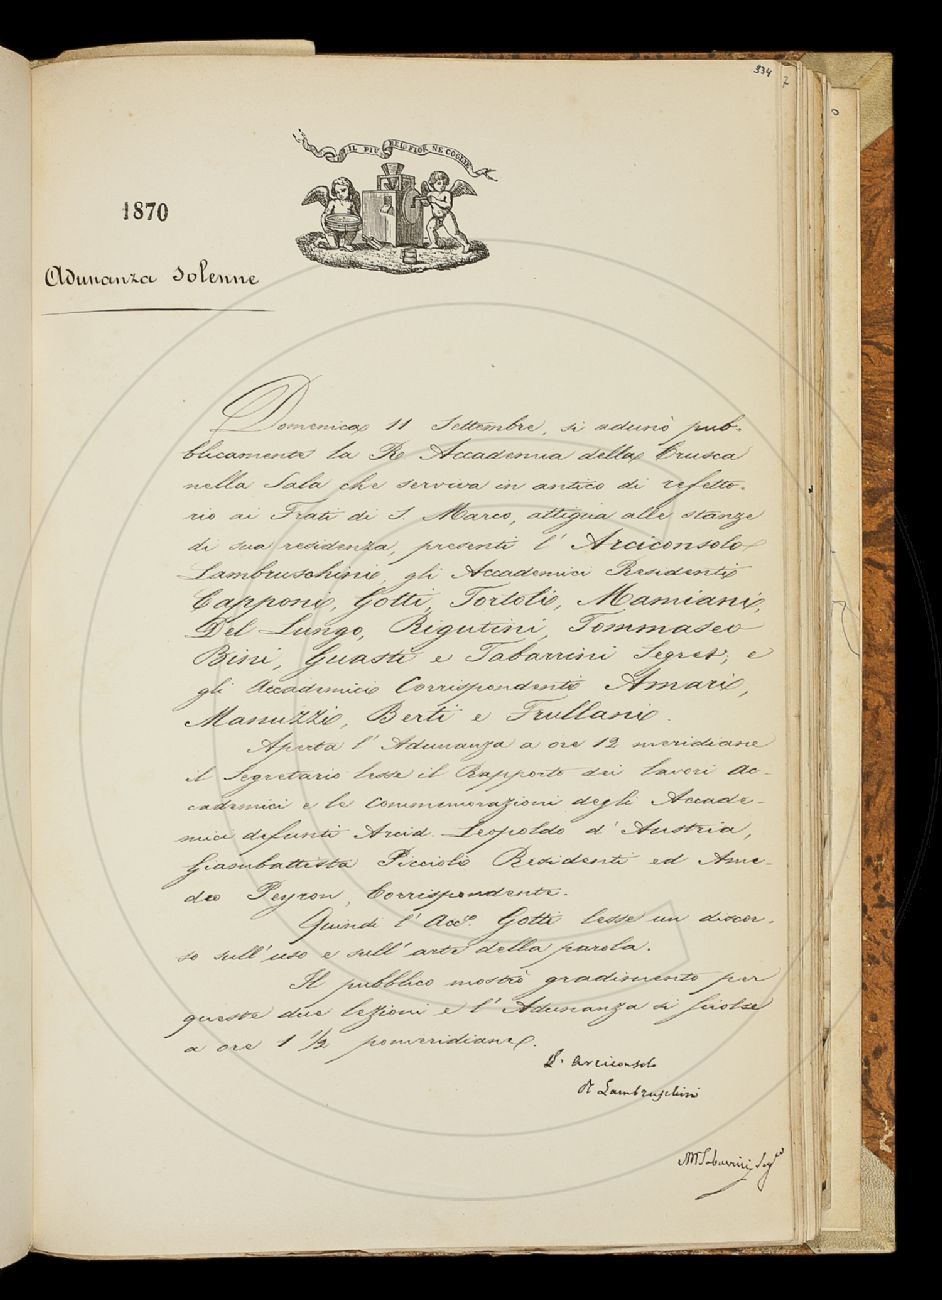 334
7
IL PIÙ BEL FIOR NE COGLIE
1870
Adunanza Solenne
Domenica 11 Settembre, si adunò pub-
blicamente la R. Accademia della Crusca
nella Sala che serviva in antico di refetto-
rio ai Frati di S. Marco, attigua alle stanze
di sua residenza, presenti l' Arciconsolo
Lambruschini, gli Accademici Residenti
Capponi, Gotti, Tortoli, Mamiani,
Del Lungo, Rigutini, Tommaseo
Bini, Guasti e Tabarrini Segret.; e
gli Accademici Corrispondenti Amari,
Manuzzi, Berti e Frullani.
Aperta l' Adunanza a ore 12 meridiane
il Segretario lesse il Rapporto dei lavori Ac-
cademici e le Commemorazioni degli Accade-
mici defunti Arcid. Leopoldo d' Austria,
Giambattista Piccioli Residenti ed Ame-
deo Peyron, Corrispondente.
Quindi l' Acc.º Gotti lesse un discor-
so sull' uso e sull' arte della parola.
Il pubblico mostrò gradimento per
queste due lezioni e l' Adunanza si sciolse
a ore 1 ½ pomeridiane.
L' Arciconsolo
R Lambruschini
M Tabarrini Seg.rio